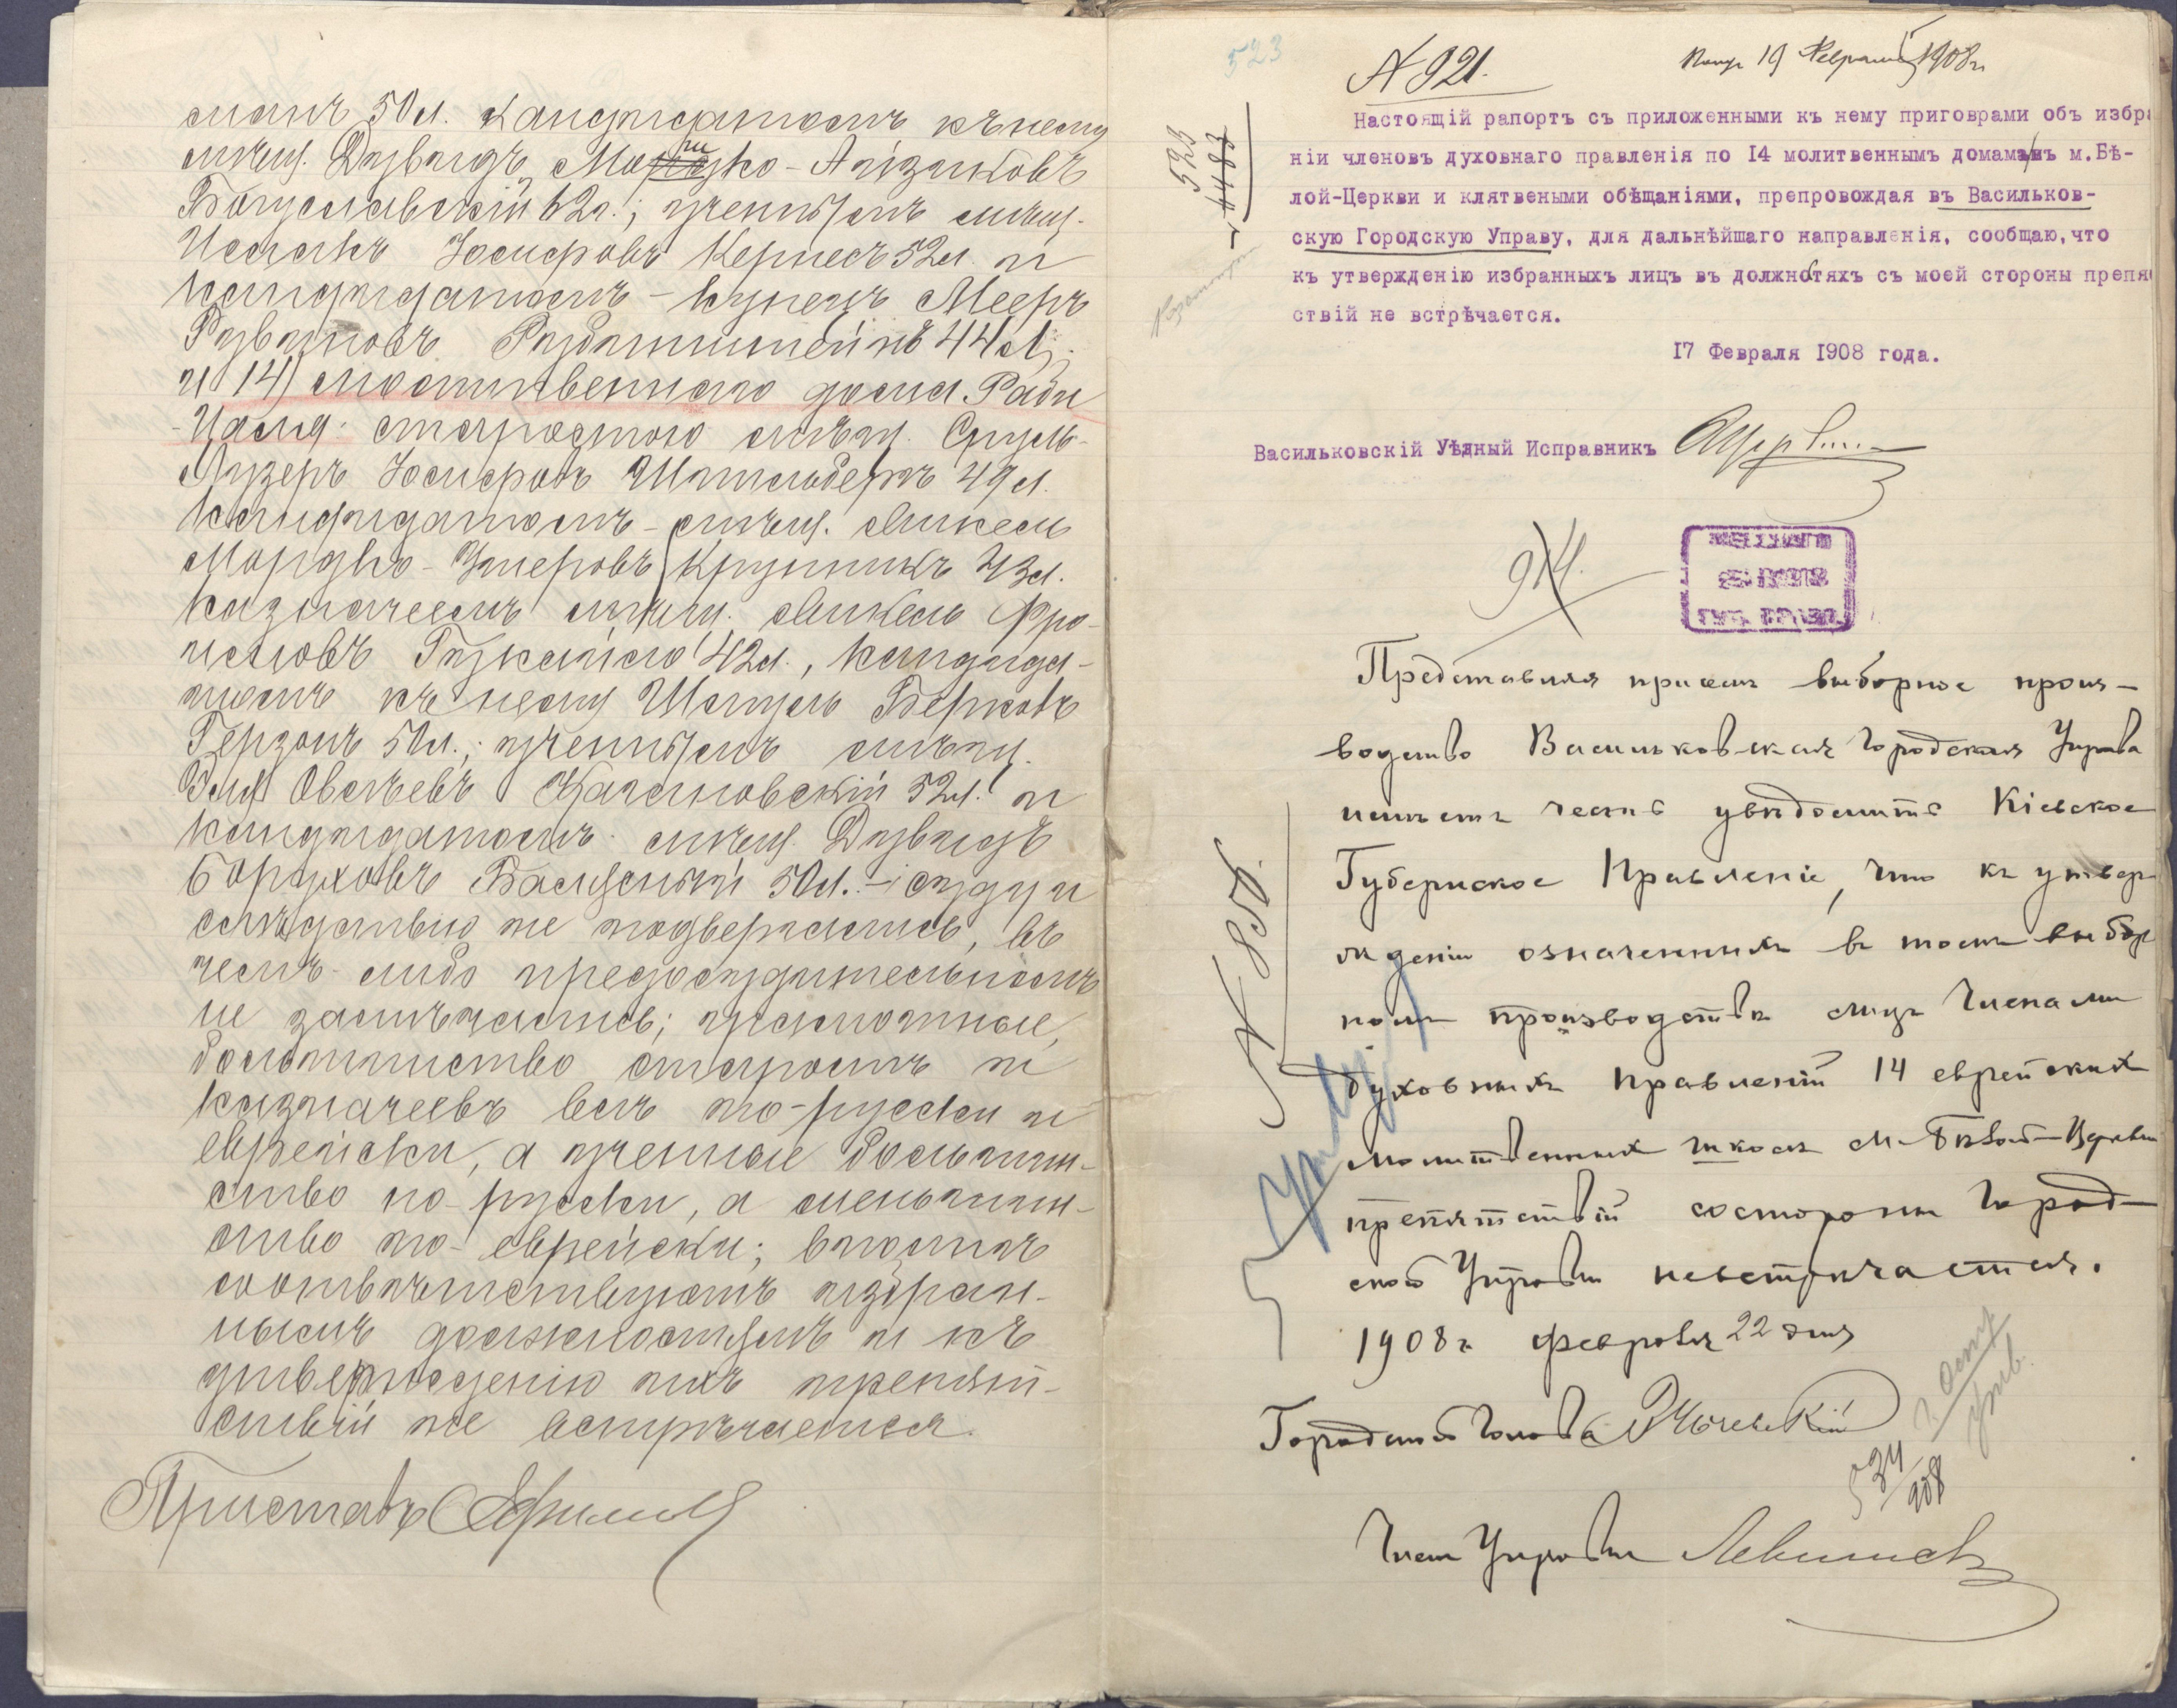 манъ 50 л. кандидатомъ къ нему
мѣщ. Давидъ Мошко-Айзиковъ
Богуславскій 62 л.; ученымъ мѣщ.
Исаакъ Іосифовъ Кернесъ 52 л. и
кандидатомъ - купецъ Мееръ
и 14) молитвеннаго дома Раби
Иосифовъ 49 л.
кандидатомъ - мѣщ. Микель
Мордко - Умеровъ Крупникъ 43 л.
казначеемъ мѣщ. Микель Фро-
имовъ 42 л., кандида-
томъ къ нему Шмуль Берковъ
Герзонъ 50 л.; ученымъ мѣщ.
Овсѣевъ 52 л. и
кандидатомъ мѣщ. Давидъ
Боруховъ 50 л. - суду и
слѣдствію не подвергались, въ
чемъ либо предосудительномъ
не замѣчались; грамотные,
большинство старостъ и
казначеевъ всѣ по-русски и
еврейски, а ученые большин-
ство по-русски, а меньшин-
ство по-еврейски; вполнѣ
соотвѣтствуютъ избран-
нымъ должностямъ и къ
утвержденію ихъ препят-
ствій не встрѣчается.
Приставъ
523
№ 921.
Получ 19 Февраля 1908 г.
523
4483
Настоящій рапортъ съ приложенными къ нему приговрами объ избра
ніи членовъ духовнаго правленія по 14 молитвеннымъ домамъ м.Бѣ-
лой-Церкви и клятвеными обѣщаніями, препровождая въ Васильков-
скую Городскую Управу, для дальнѣйшаго направленія, сообщаю,что
къ утвержденію избранныхъ лицъ въ должностяхъ съ моей стороны препя
ствій не встрѣчается.
17 Февраля 1908 года.
Васильковскій Уѣдный Исправникъ
914.
Представляя присемъ выборное произ-
водство Васильковская Городская Управа
имѣетъ честь увѣдомить Кіевское
Губернское Правленіе, что къ утвер
жденію означенныхъ въ томъ выбор
номъ производствѣ лицъ Членами
духовныхъ правленій 14 еврейскихъ
молитвенныхъ школъ м. Бѣлой-Церкви
препятствій состороны Город-
ской Управы невстрѣчается.
1908 г. февраля 22 дня
№ 856.
Городской Голова
534
908
Членъ Управы